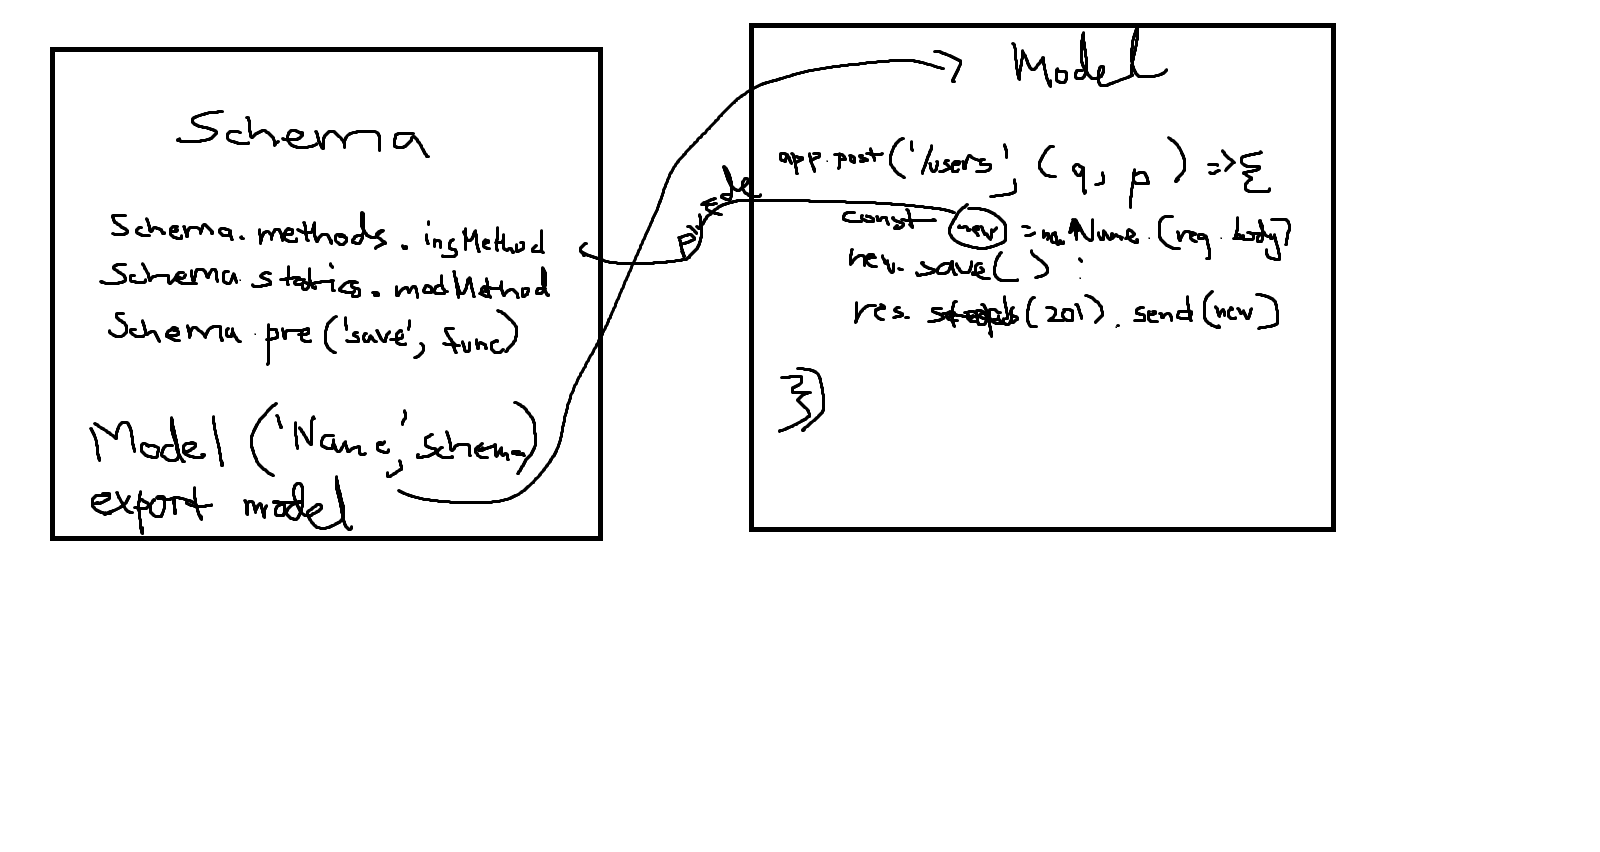 Schema
Schema.methods.insMethod
Schema.statics.modMethod
Schema.pre('save', func)
Model ('Name', schema)
export model
Model
app.post('/users', (q, p) => {
const new = Name.(req.body)
new.save() ;
res. (201).send(new)
})